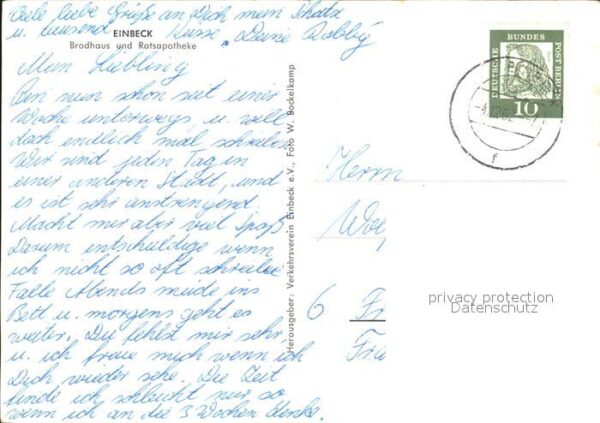 Viele liebe Grüße an Dich mein Schatz
u. tausend Küsse, Deine Dolly
EINBECK
Brodhaus und Ratsapotheke
Mein Liebling
Bin nun schon seit einer
Woche unterwegs u. will
doch endlich mal schreiben
Wir sind jeden Tag in
einer anderen Stadt, und
es ist sehr anstrengend.
Macht mir aber viel Spaß
Darum entschuldige wenn
ich nicht so oft schreibe.
Falle Abends müde ins
Bett u. morgens geht es
weiter. Du fehlst mir sehr
u. ich freue mich wenn ich
Dich wieder sehe. Die Zeit
finde ich schleicht nur so
wenn ich an die 3 Wochen denke.
Herausgeber: Verkehrsverein Einbeck e.V., Foto W. Bockelkamp
DEUTSCHE
BUNDES
POST BERLIN
10
f
Herrn
6
privacy protection
Datenschutz